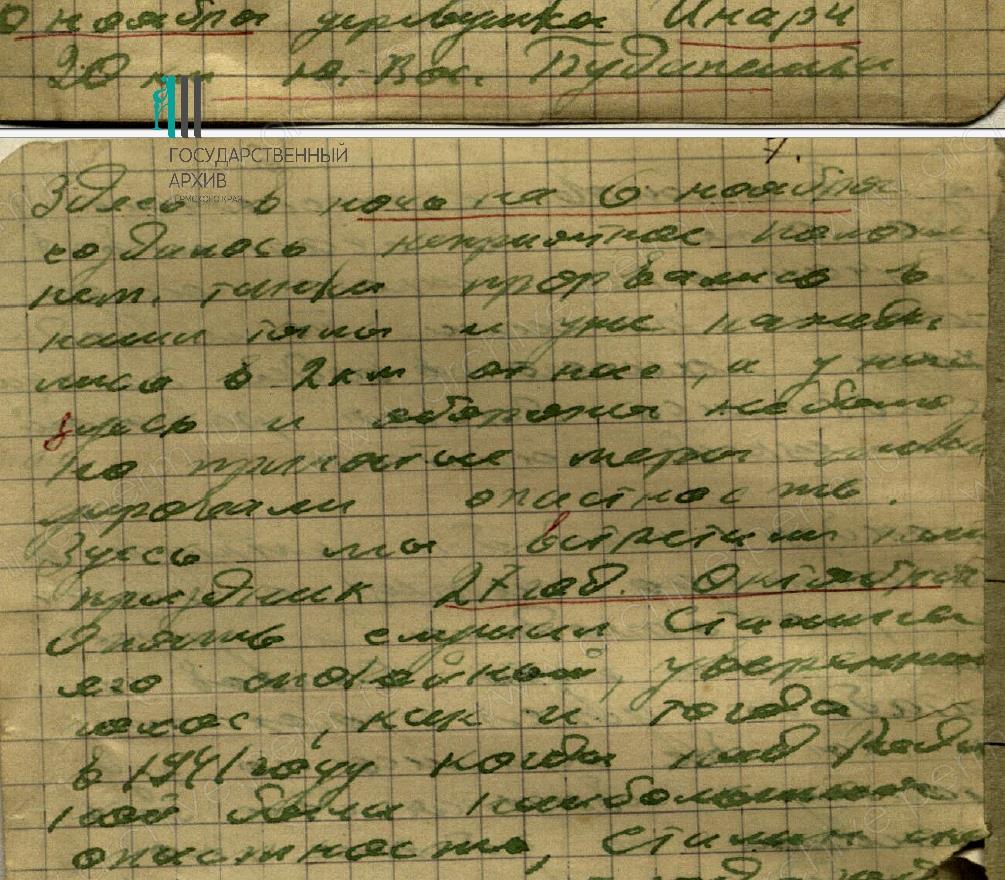 0 ноября деревушка Инарч
20 км ю.-вос. Будапешта
ГОСУДАРСТВЕННЫЙ
АРХИВ
ПЕРМСКОГО КРАЯ
7.
Здесь в ночь на 6 ноября
создалось неприятное
нем. танки прорвались в
наши тылы и уже
лись в 2 км от нас, и у
здесь и обороны не было
Но принятые меры
ировали опастность.
Здесь мы встретили
праздник 27 год. Октября
Опять слушал Сталина
его спокойный,
голос, как и тогда
в 1941 году когда над Роди
ной была наибольшая
опастность, Сталин